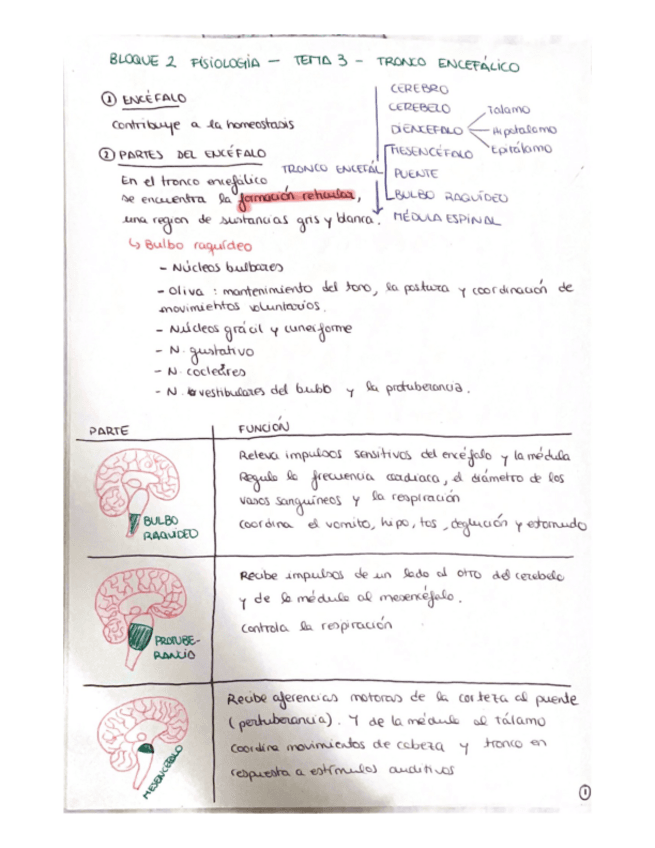 BLOQUE 2 FISIOLOGIA - TEMA 3 - TRONCO ENCEFÁLICO
① ENCÉFALO
contribuye a la homeostasis
② PARTES DEL ENCÉFALO
En el tronco encefálico
se encuentra la formación reticular,
una region de sustancias gris y blanca.
CEREBRO
CEREBELO
DIENCEFALO
Talamo
Hipotalamo
Epitálamo
TRONCO ENCEFAL
MESENCÉFALO
PUENTE
BULBO RAQUÍDEO
MÉDULA ESPINAL
↳ Bulbo raquídeo
- Núcleos bulbares
- Oliva : mantenimiento del tono, la postura y coordinación de
movimientos voluntarios.
- Núcleos grácil y cuneiforme
- N. gustativo
- N. cocleares
- N. vestibulares del bulbo y la protuberancia.
PARTE FUNCIÓN
BULBO
RAQUIDEO
Releva impulsos sensitivos del encéfalo y la médula
Regula la frecuencia cardiaca, el diámetro de los
vasos sanguíneos y la respiración
coordina el vomito, hipo, tos, deglución y estornudo
PROTUBE-
RANCIO
Recibe impulsos de un lado al otro del cerebelo
y de la médula al mesencéfalo.
Controla la respiración
MESENCÉFALO
Recibe aferencias motoras de la corteza al puente
(pertuberancia). Y de la médula al tálamo
Coordina movimientos de cabeza y tronco en
respuesta a estímulos auditivos
①